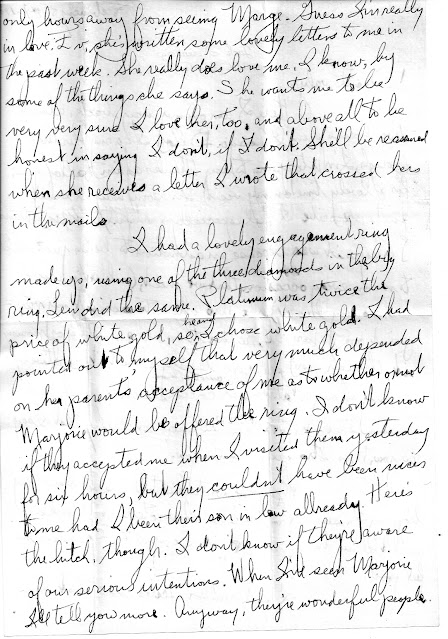 only hours away from seeing Marge. Guess I'm really
in love. I'v, she's written some lovely letters to me in
the past week. She really does love me, I know, by
some of the things she says. She wants me to be
very very sure I love her, too, and above all to be
honest in saying I don't, if I don't. She'll be reassured
when she receives a letter I wrote that crossed hers
in the mails.
I had a lovely engagement ring
made up, using one of the three diamonds in the big
ring. Lew did the same. Platinum was twice the
price of white gold, so, I chose heavy white gold. I had
pointed out to myself that very much depended
on her parents' acceptance of me as to whether or not
Marjorie would be offered the ring. I don't know
if they accepted me when I visited them yesterday
for six hours, but they couldn't have been nicer
to me had I been their son in law allready. Here's
the hitch, though. I don't know if they're aware
of our serious intentions. When I've seen Marjorie
I'll tell you more. Anyway, they're wonderful people.